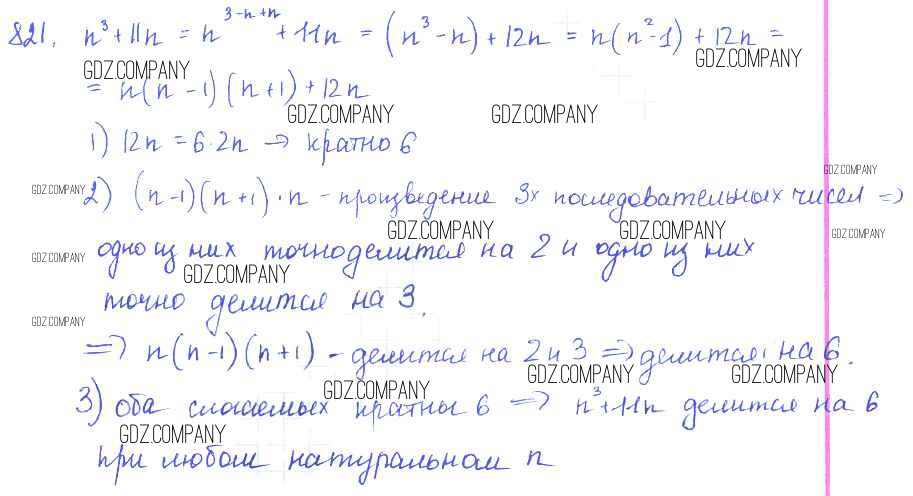 821. n³ + 11n = n³⁻ⁿ⁺ⁿ + 11n = (n³ - n) + 12n = n(n² - 1) + 12n =
GDZ.COMPANY GDZ.COMPANY
= n(n - 1)(n + 1) + 12n
GDZ.COMPANY GDZ.COMPANY
1) 12n = 6·2n → кратно 6
GDZ.COMPANY
GDZ.COMPANY 2) (n-1)(n+1)·n - произведение 3х последовательных чисел =>
GDZ.COMPANY GDZ.COMPANY GDZ.COMPANY
GDZ.COMPANY одно из них точноделится на 2 и одно из них
GDZ.COMPANY
точно делится на 3.
GDZ.COMPANY
=> n(n-1)(n+1) - делится на 2 и 3 => делится на 6.
GDZ.COMPANY GDZ.COMPANY GDZ.COMPANY
3) оба слагаемых кратны 6 => n³+11n делится на 6
GDZ.COMPANY
при любом натуральном n